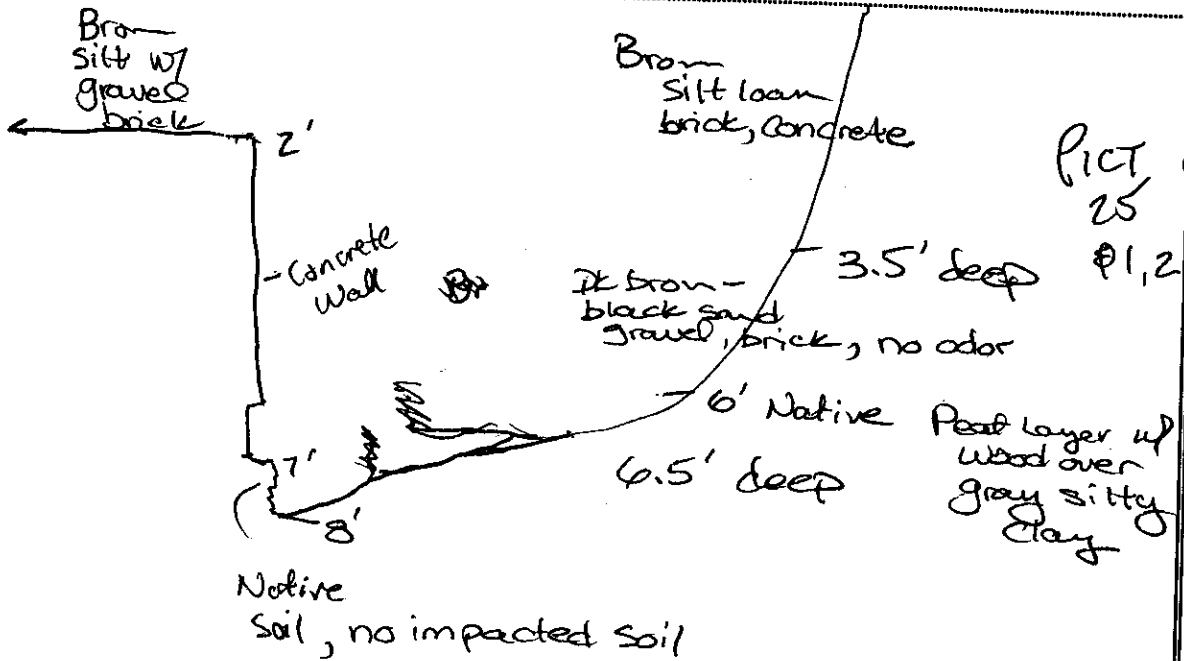 Brown
silt w/
gravel
brick
2'
Brown
silt loam
brick, concrete
PICT
25
1,2
Concrete
Wall
3.5' deep
Dk brown-
black sand
gravel, brick, no odor
6' Native
Peat Layer w/
wood over
gray silty
clay
6.5' deep
7'
8'
Native
soil, no impacted soil